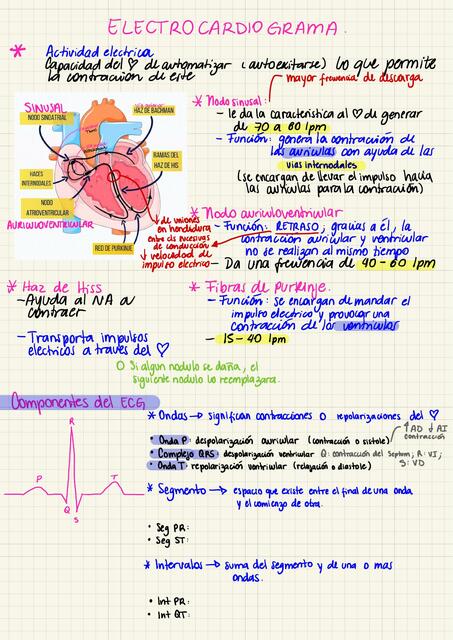 ELECTROCARDIOGRAMA.
* Actividad electrica
Capacidad del ♡ de automatizar (autoexitarse) lo que permite
la contracción de este
mayor frecuencia de descarga
SINUSAL
NODO SINOATRIAL
HAZ DE BACHMAN
RAMAS DEL
HAZ DE HIS
HACES
INTERNODALES
NODO
ATROVENTRICULAR
AURICULOVENTRICULAR
RED DE PURKINJE
* Nodo sinusal:
- le da la caracteristica al ♡ de generar
de 70 a 80 lpm
- Función: genera la contracción de
las auriculas con ayuda de las
vias internodales
(se encargan de llevar el impulso hacia
las auriculas para la contracción)
↓ de uniones
en hendidura
entre cls sucesivas
de conducción
↓ velocidad de
impulso electrico
* Nodo auriculoventricular
- Función: RETRASO, gracias a él, la
contracción auricular y ventricular
no se realizan al mismo tiempo
- Da una frecuencia de 40-60 lpm
* Haz de Hiss
- Ayuda al NA a
contraer
- Transporta impulsos
electricos a través del ♡
* Fibras de Purkinje.
- Función: se encargan de mandar el
impulso electrico y provocar una
contracción de los ventricular
- 15-40 lpm
O Si algun nodulo se daña, el
siguiente nodulo lo reemplazara.
Componentes del ECG
* Ondas → significan contracciones o repolarizaciones del ♡
• Onda P: despolarización auricular (contracción o sistole)
↑AD ↓AI
contracción
• Complejo QRS: despolarización ventricular Q: contracción del septum; R: VI;
S: VD
• Onda T: repolarización ventricular (relajación o diastole)
R
P
T
Q
S
* Segmento → espacio que existe entre el final de una onda
y el comienzo de otra.
• Seg PR:
• Seg ST:
* Intervalos → suma del segmento y de una o mas
ondas.
• Int PR:
• Int QT: